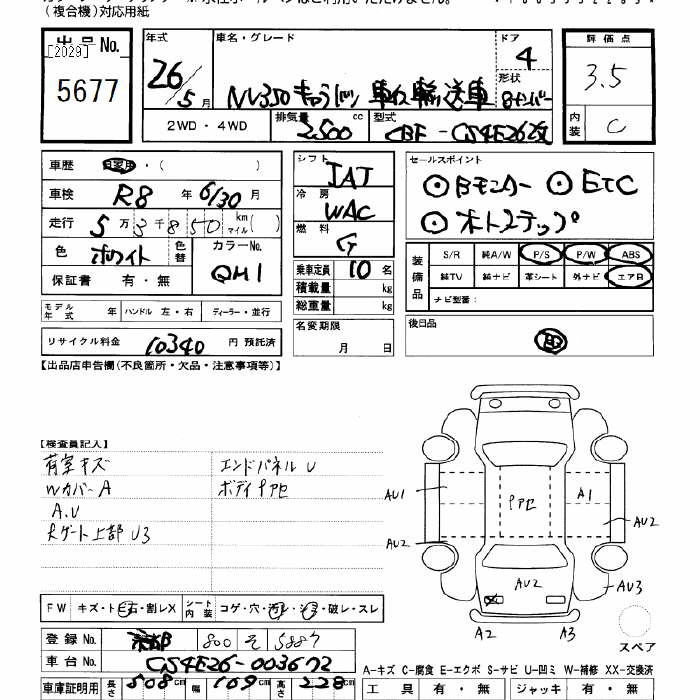 (複合機)対応用紙
出品No.
[2029]
5677
年式
26/5月
車名・グレード
NV350キャラバン 車いす輸送車
ドア
4
形状
8ナンバー
評価点
3.5
内装
C
2WD・4WD
排気量
2500
cc
型式
CBF-CS4E26改
車歴
自家用・( )
車検
R8年6/30月
走行
5万3千850
km
マイル
( )
色
ホワイト
色替
カラーNo.
QM1
保証書 有・無
モデル年式
年
ハンドル 左・右
ディーラー・並行
リサイクル料金
10340
円 預託済
シフト
IAT
冷房
WAC
燃料
G
乗車定員
10名
積載量
kg
総重量
kg
名変期限
月 日
セールスポイント
◎Bモニター ◎ETC
◎オートステップ
装備品
S/R 純A/W P/S P/W ABS
純TV 純ナビ 革シート 外ナビ エアB
ナビ型番:
後日品
【出品店申告欄(不良箇所・欠品・注意事項等)】
【検査員記入】
荷室キズ
WカバーA
A.U
大ゲート上部U3
エンドパネルU
ボディ
FW
キズ・トビ石・割レX
シート内装
コゲ・穴・汚レ・シミ・破レ・スレ
登録No.
800 そ
車台No.
CS4E26-003672
車庫証明用
長さ
508
cm
幅
169
cm
高さ
228
cm
AU1
AU2
A1
AU2
AU2
AU3
A2
A3
スペア
A-キズ C-腐食 E-エクボ S-サビ U-凹ミ W-補修 XX-交換済
工具 有・無
ジャッキ 有・無